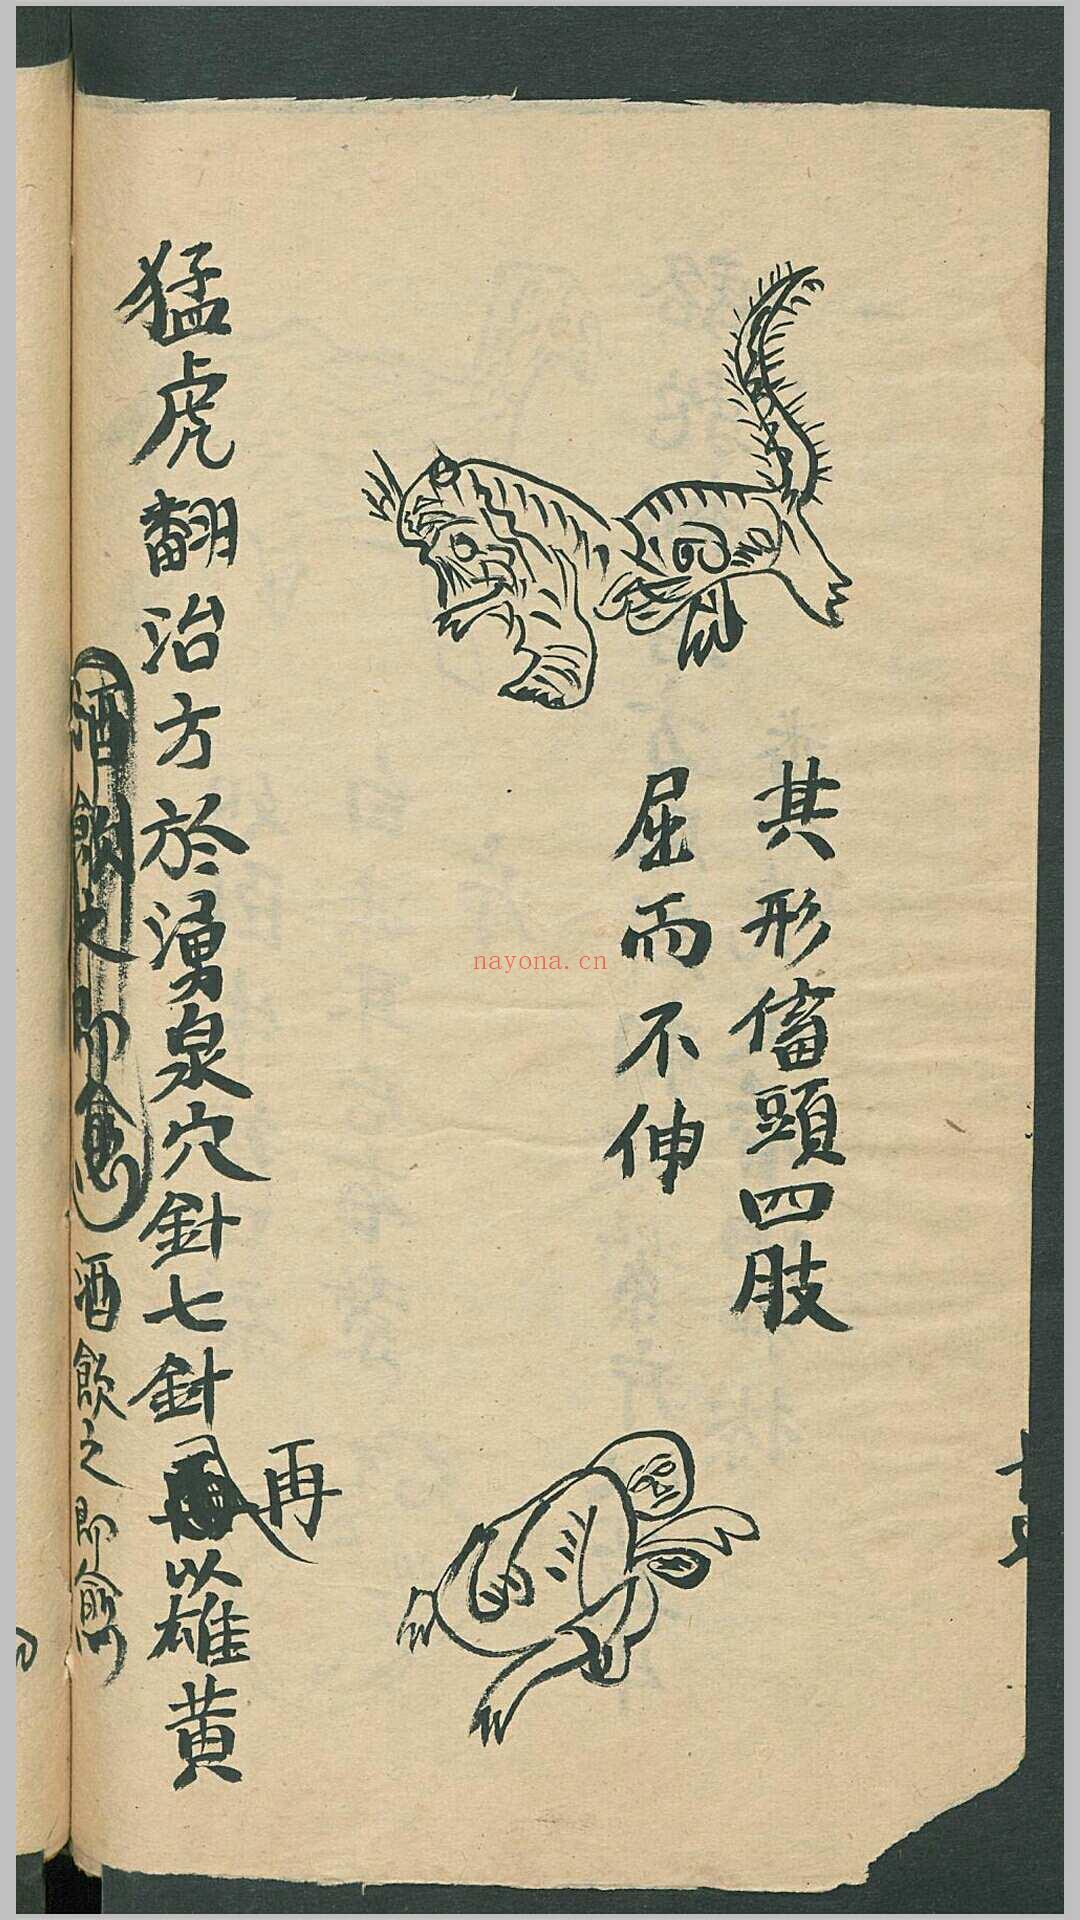 其形傗頭四肢
屈而不伸
猛虎翻治方於湧泉穴針七針再以雄黃
酒飲之即愈
酒飲之即愈
nayona.cn